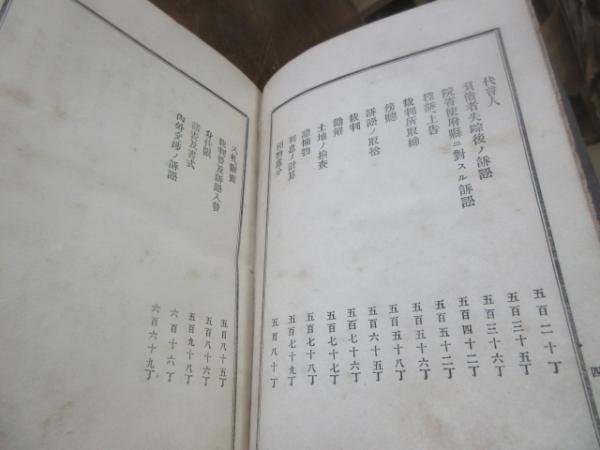 代言人 五百二十丁
負債者失踪後ノ訴訟 五百三十五丁
院省使府縣ニ對スル訴訟 五百三十六丁
控訴上告 五百四十二丁
裁判所取締 五百五十二丁
傍聽 五百五十六丁
訴訟ノ取捨 五百五十八丁
裁判 五百六十五丁
勸解 五百七十六丁
土地ノ檢査 五百七十七丁
證據物 五百七十八丁
利息ノ計算 五百七十九丁
五百八十丁
四
入札糶賣 五百八十五丁
裁判官及訴訟入費 五百八十六丁
身代限 五百九十八丁
及書式 六百十六丁
內外交涉ノ訴訟 六百六十九丁